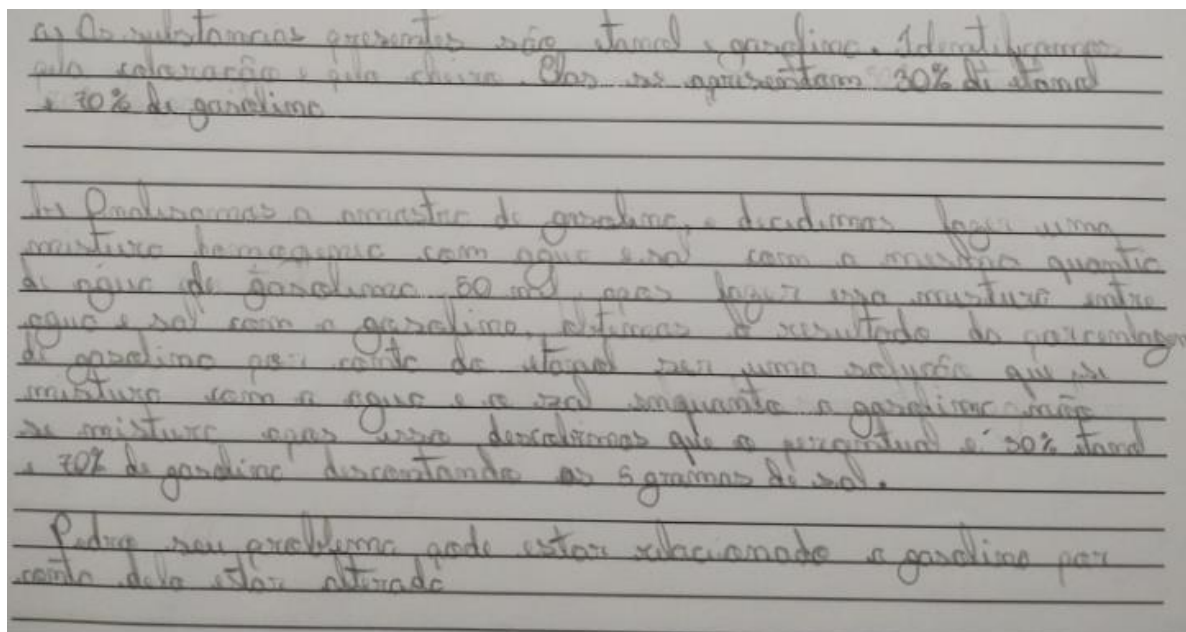 a) As substancias presentes são etanol e gasolina. Identificamos
pela coloração e pelo cheiro. Elas se apresentam 30% di etanol
e 70% de gasolina
b) Analisamos a amostra de gasolina, e decidimos fazer uma
mistura homogenia com agua e sal com a mesma quantia
di água de gasolina 50 ml, apos fazer essa mistura entre
agua e sal com a gasolina, obtemos o resultado da porcentagem
di gasolina por conta do etanol ser uma solução que se
mistura com a agua e o sal enquanto a gasolina não
se mistura apos isso descobrimos que o percentual e' 30% etanol
e 70% de gasolina descontando as 5 gramas de sal.
Pedro seu problema pode estar relacionado a gasolina por
conta dela estar alterada